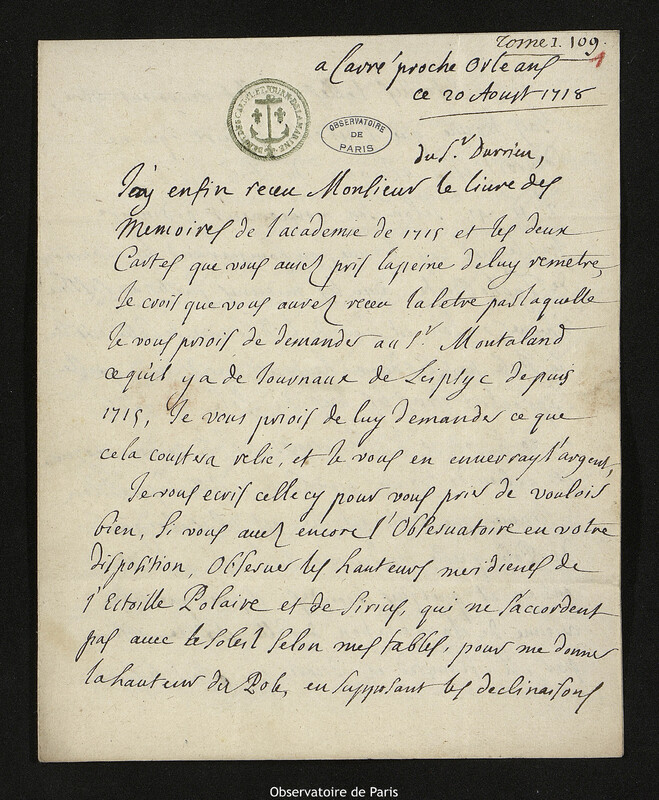 Tome I. 109.
1
a Carré proche Orleans
ce 20 Aoust 1718
DEPOT DES CARTES ET JOURN. DE LA MARINE
OBSERVATOIRE
DE
PARIS
du S.r Durrieu,
J'ay enfin receu Monsieur le livre des
Memoires de l'academie de 1715 et les deux
Cartes que vous aviez pris la peine de luy remetre,
Je crois que vous aurez receu la letre par laquelle
Je vous priois de demander au S.r Montaland
ce qu'il y a de Journaux de Leipsyc depuis
1715, Je vous priois de luy demander ce que
cela coustera relié, et Je vous en enverray l'argent,
Je vous ecris celle cy pour vous prier de vouloir
bien, si vous avez encore l'Observatoire en votre
disposition, Observer les hauteurs meridienes de
l'Estoille Polaire et de Sirius, qui ne s'accordent
pas avec le Soleil selon mes tables, pour me donner
la hauteur du Pole, en supposant les declinaisons
Observatoire de Paris